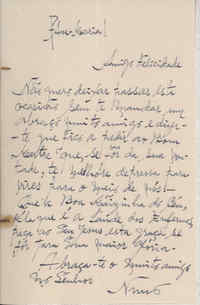 Ave-Maria!
Amigo Felicidade
Não quero deixar passar esta
ocasião sem te mandar um
abraço muito amigo e dizer-
te que fico a pedir ao Bom
Mestre que, se fôr da sua von-
tade, te melhore depressa para
ires para o meio de nós!
Que a Boa Mãezinha do Céu,
Ela que é a Saúde dos Enfermos,
faça ao Seu Jesus esta graça se
fôr para Sua maior Glória.
Abraça-te o muito amigo
no Senhor
Nuno